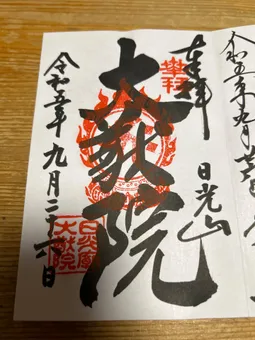 令和五年九月
奉拝
日光山
大猷院
令和五年九月二十六日
日光廟
大猷院